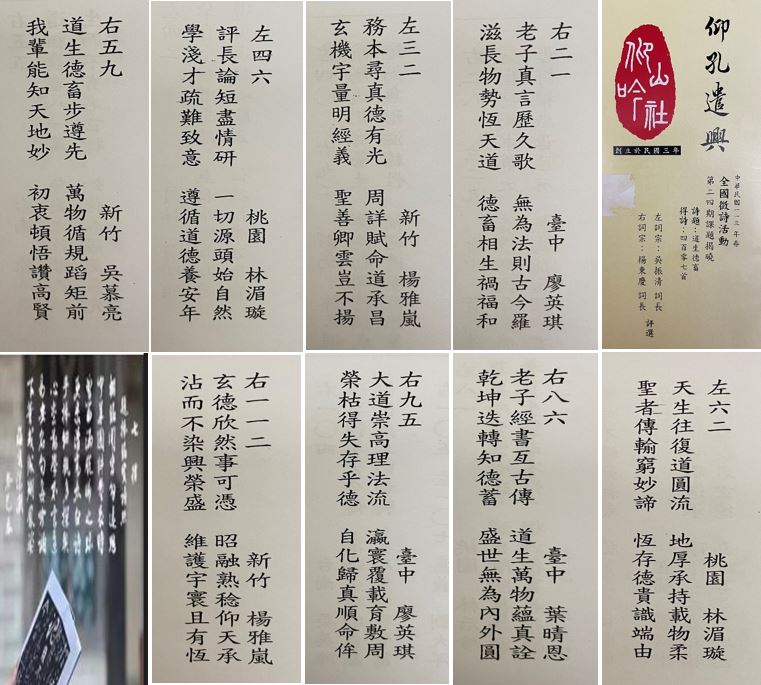 仰孔遣興
仰山吟社
創立於民國三年
中華民國一一三年春
全國徵詩活動
第二四期課題揭曉
詩題：道生德畜
得詩：四百零七首
左詞宗：吳振清 詞長
右詞宗：楊東慶 詞長
評選
右二一
臺中 廖英琪
老子真言歷久歌 無為法則古今羅
滋長物勢恆天道 德畜相生禍福和
左三二
新竹 楊雅嵐
務本尋真德有光 周詳賦命道承昌
玄機宇量明經義 聖善卿雲豈不揚
左四六
桃園 林湄璇
評長論短盡情研 一切源頭始自然
學淺才疏難致意 遵循道德養安年
右五九
新竹 吳慕亮
道生德畜步遵先 萬物循規蹈矩前
我輩能知天地妙 初衷頓悟讚高賢
左六二
桃園 林湄璇
天生往復道圓流 地厚承持載物柔
聖者傳輸窮妙諦 恆存德貴識端由
右八六
臺中 葉晴恩
老子經書亙古傳 道生萬物蘊真詮
乾坤迭轉知德蓄 盛世無為內外圓
右九五
臺中 廖英琪
大道崇高理法流 瀛寰覆載育敷周
榮枯得失存乎德 自化歸真順命侔
右一一二
新竹 楊雅嵐
玄德欣然事可憑 昭融熟稔仰天承
沾而不染興榮盛 維護宇寰且有恆